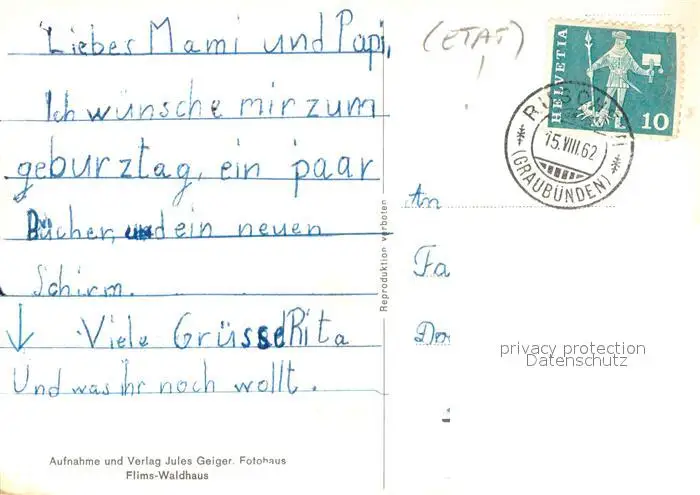 Liebes Mami und Papi,
Ich wünsche mir zum
geburztag, ein paar
Bücher, und ein neuen
Schirm.
↓ Viele GrüsseRita
Und was ihr noch wollt.
Aufnahme und Verlag Jules Geiger. Fotohaus
Flims-Waldhaus
Reproduktion verboten
(ETAT)
HELVETIA
10
15.VIII.62
(GRAUBÜNDEN)
An
Fa
privacy protection
Datenschutz